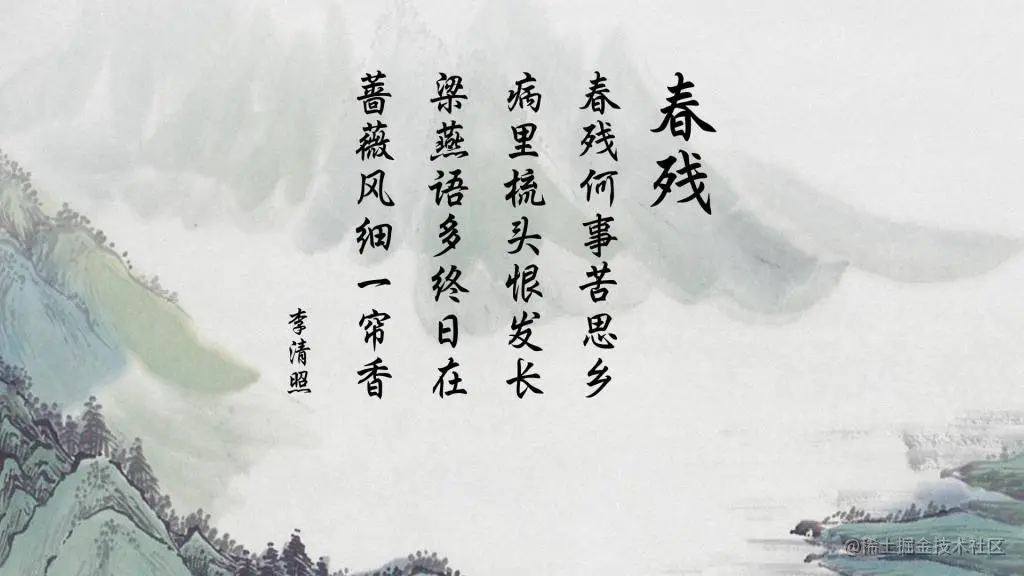 春残
春残何事苦思乡
病里梳头恨发长
梁燕语多终日在
蔷薇风细一帘香
李清照
@稀土掘金技术社区